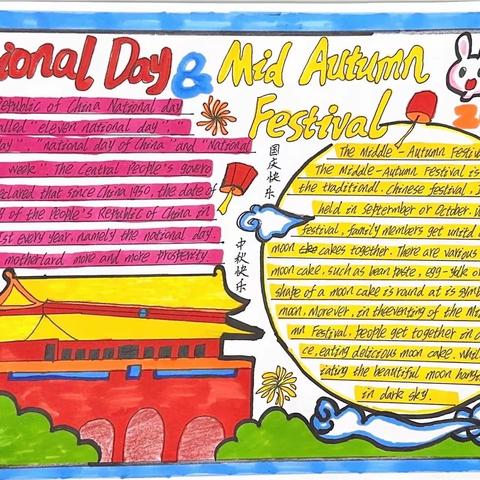 ional Day & Mid Autumn
Festival
Republic of China National day
alled "eleven national day".
ay". "national day of China" and "National
week". The Central People's govero
eclared that since China 1950, the date of
y of the People's Republic of China in
st every year, namely the national day.
motherland more and more prosperity.
国庆快乐
中秋快乐
The Middle-Autumn Festiv
The Middle-Autumn Festival is
the traditional. Chinese festival, I
held in septermber or October.
festival, family members get unitd
moon cakes together. There are various
moon cake, such as bean paste, egg-yolk
shape of a moon cake is round at is symb
moon. Morever, in theeventing of the Mi
mn Festival. people get together in
ce, eating delicious moon cake. whil
iating the beautiful moon hang
in dark sky.